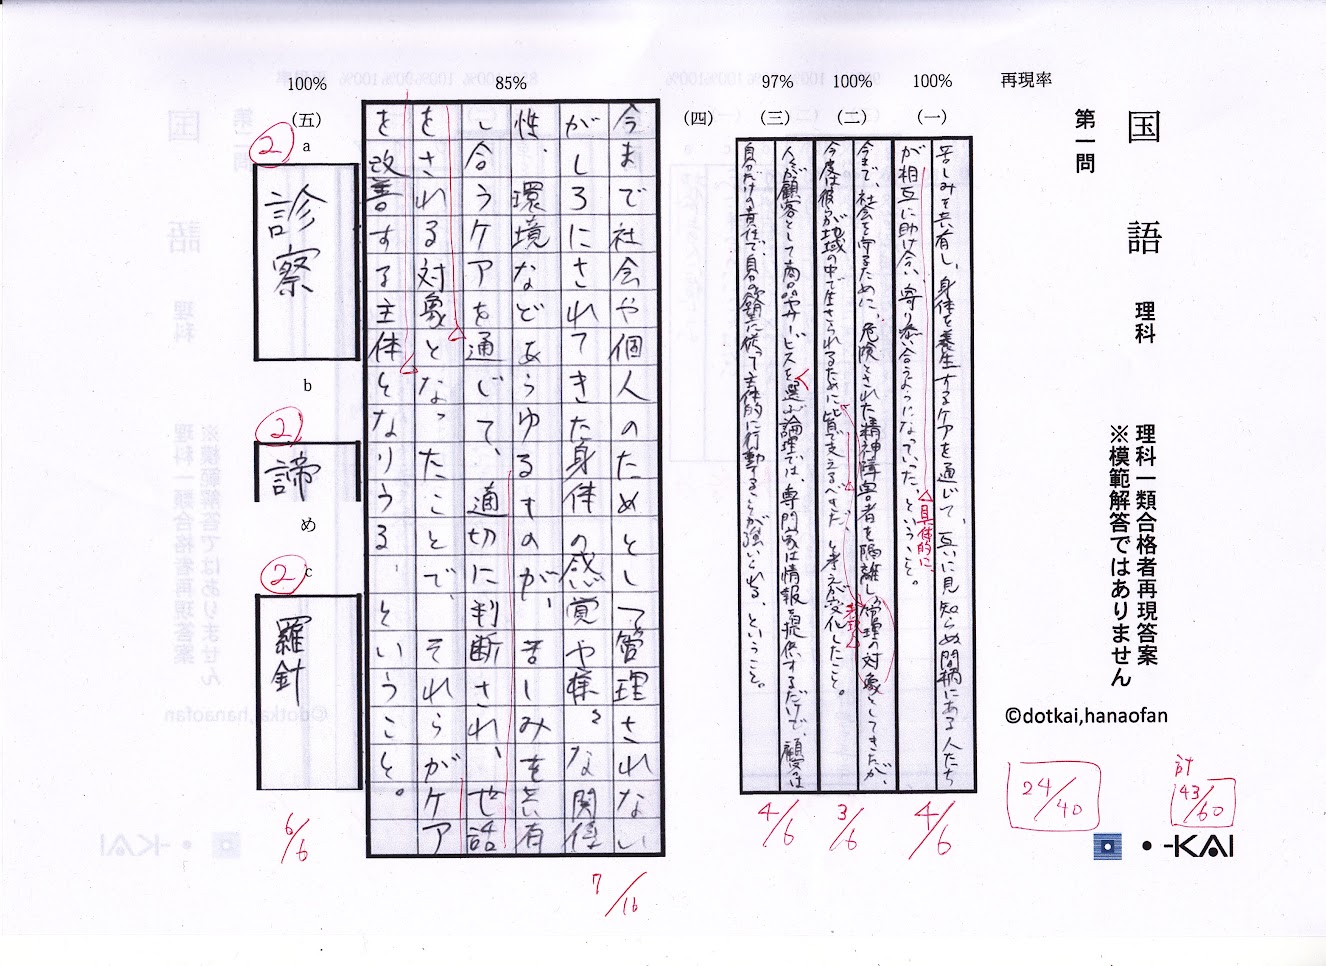 国語 理科
第一問
理科一類合格者再現答案
※模範解答ではありません
©dotkai,hanaofan
計
43/60
24/40
•-KAI
再現率
100%
(一)
苦しみを共有し、身体を養生するケアを通じて、互いに見知らぬ間柄にある人たち
が相互に助け合い、寄り添い合うようになっていった、ということ。
具体的に
4/6
100%
(二)
今まで、社会を守るために、危険とされた精神障害者を隔離し、管理の対象としてきたが、
今度は彼らが地域の中で生きられるために皆で支えるべきだ、と考えが変化したこと。
表現
3/6
97%
(三)
人々が顧客として商品やサービスを選ぶ論理では、専門家は情報を提供するだけで、顧客は
自分だけの責任で、自分の欲望に従って主体的に行動することが強いられる、ということ。
4/6
(四)
85%
今まで社会や個人のためとして管理されない
がしろにされてきた身体の感覚や様々な関係
性、環境などあらゆるものが、苦しみを共有
し合うケアを通じて、適切に判断され、世話
をされる対象となったことで、それらがケア
を改善する主体となりうる、ということ。
7/16
100%
(五)
a
②
診察
b
②
諦
め
c
②
羅針
6/6